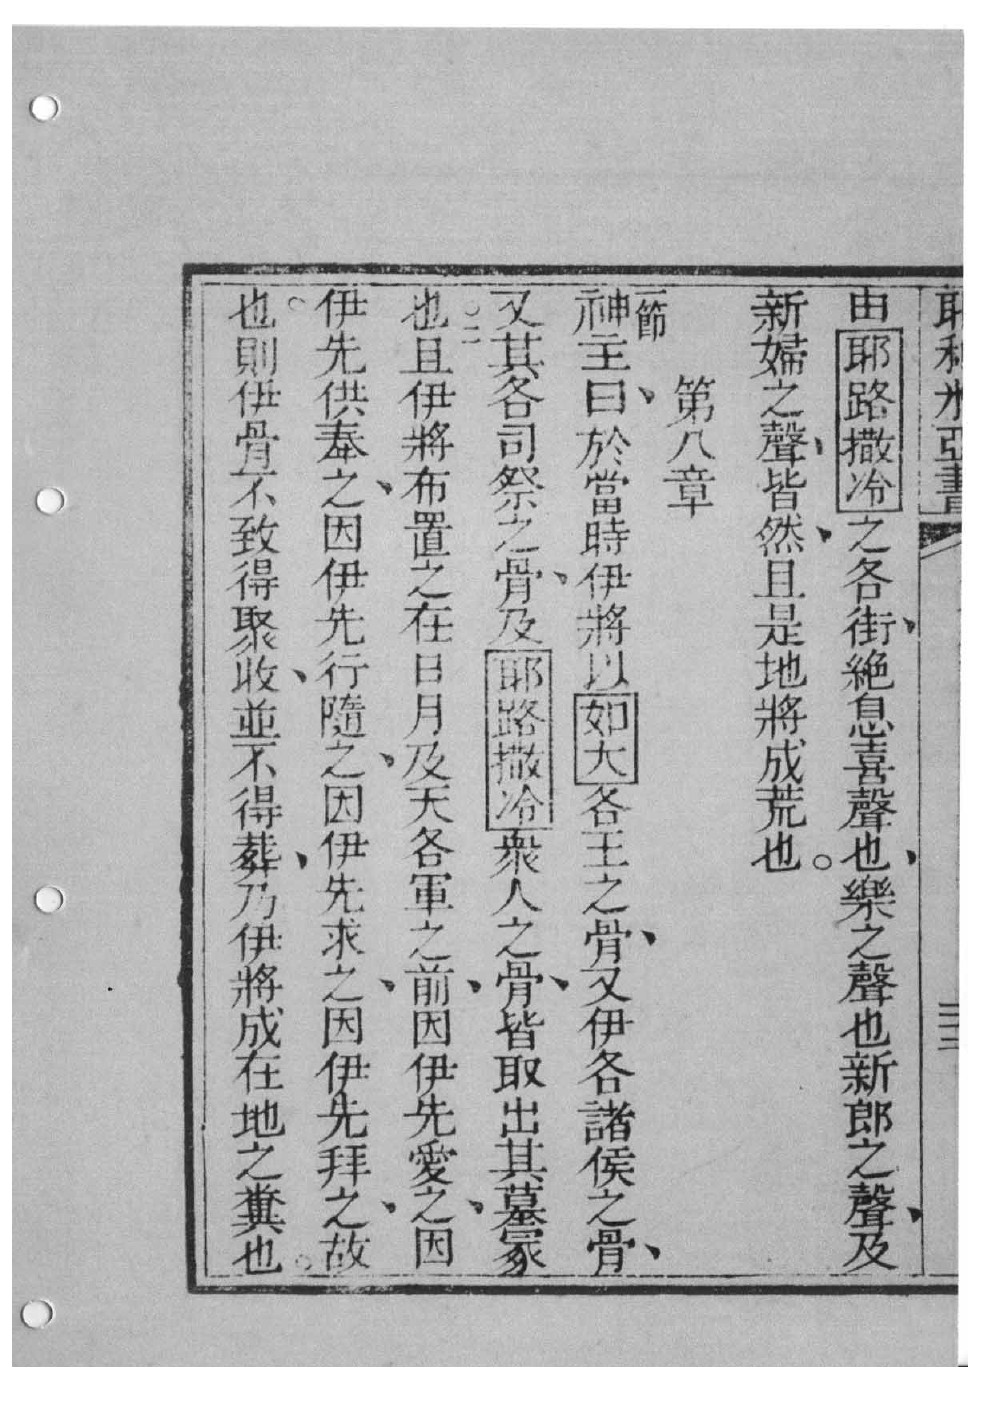 耶利米亞書
三三
由耶路撒冷之各街、絕息喜聲也、樂之聲也新郎之聲、及
新婦之聲、皆然、且是地將成荒也。
第八章
一節神主曰、於當時伊將以如大各王之骨、又伊各諸侯之骨、
又其各司祭之骨、及耶路撒冷衆人之骨、皆取出其墓冢
也。二且伊將布置之在日月及天各軍之前、因伊先愛之、因
伊先供奉之、因伊先行隨之、因伊先求之、因伊先拜之、故
也。則伊骨不致得聚收、並不得葬、乃伊將成在地之糞也。